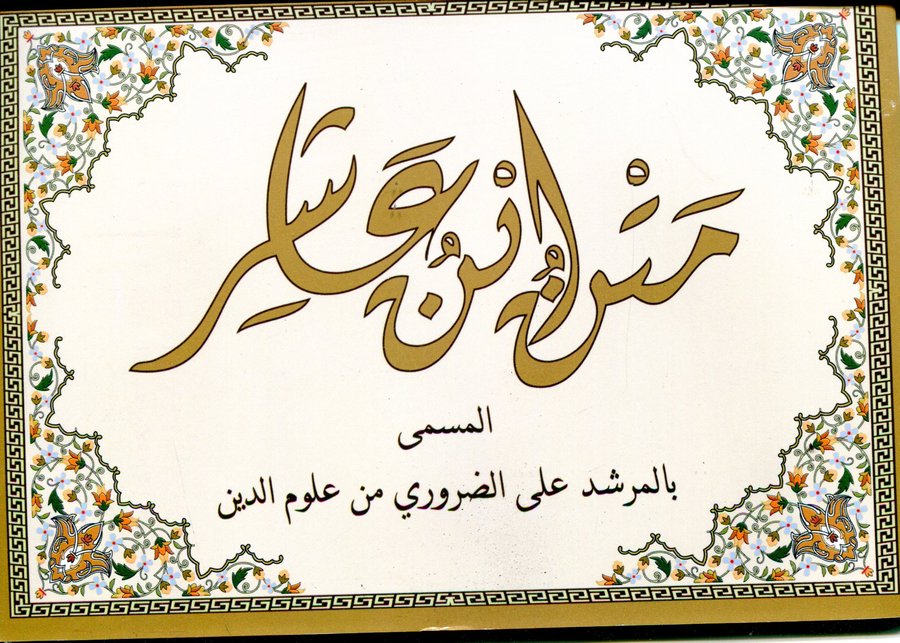 مَتْنُ ابْنُ عَاشِرِ
المسمى
بالمرشد على الضروري من علوم الدين